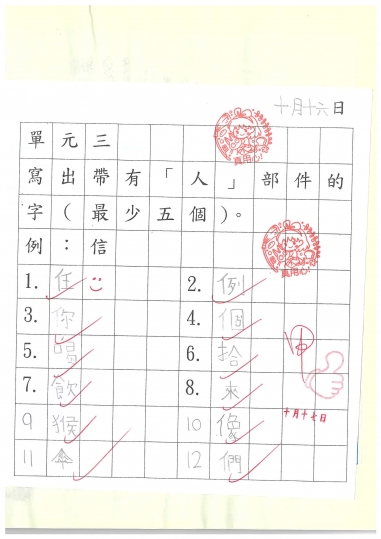 十月十六日
真用心!
單元三
寫出帶有「人」部件的
字(最少五個)。
例:信
真用心!
1. 住 2. 例
3. 你 4. 個
5. 喝 6. 拾
7. 飲 8. 來
9 猴 10 像
十月十七日
11 傘 12 們